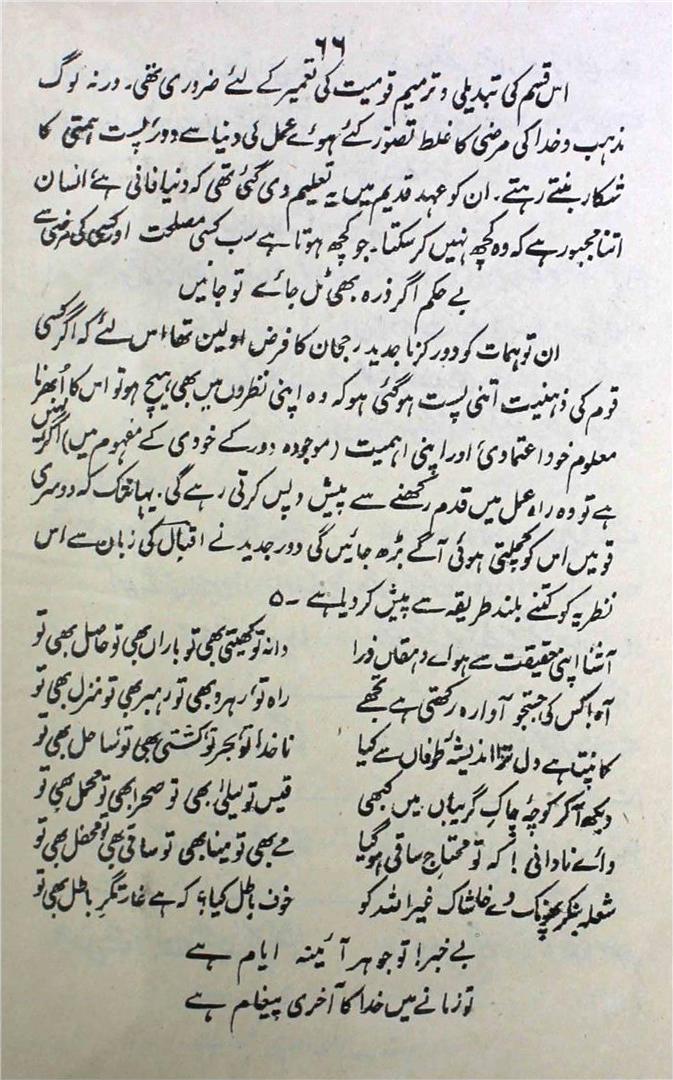 ۶۶
اس قسم کی تبدیلی و ترمیم قومیت کی تعمیر کے لئے ضروری تھی۔ ورنہ لوگ
مذہب و خدا کی مرضی کا غلط تصور کئے ہوئے عمل کی دنیا سے دور، پست ہمتی کا
شکار بنتے رہتے۔ ان کو عہد قدیم میں یہ تعلیم دی گئی تھی کہ دنیا فانی ہے، انسان
اتنا مجبور ہے کہ وہ کچھ نہیں کر سکتا۔ جو کچھ ہوتا ہے سب کسی مصلحت اور کسی کی مرضی سے
بے حکم اگر ذرہ بھی ٹل جائے تو جانیں
ان توہمات کو دور کرنا جدید رجحان کا فرض اولین تھا، اس لئے کہ اگر کسی
قوم کی ذہنیت اتنی پست ہو گئی ہو کہ وہ اپنی نظروں میں بھی ہیچ ہو تو اس کا اُبھرنا
معلوم خود اعتمادی، اور اپنی اہمیت (موجودہ دور کے خودی کے مفہوم میں) اگر نہیں
ہے تو وہ راہ عمل میں قدم رکھنے سے پیش و پس کرتی رہے گی۔ یہانتک کہ دوسری
قومیں اس کو کچلتی ہوئی آگے بڑھ جائیں گی دور جدید نے اقبال کی زبان سے اس
نظریہ کو کتنے بلند طریقہ سے پیش کر دیا ہے ۔ ؎
آشنا اپنی حقیقت سے ہو اے دہقاں ذرا دانہ تو کھیتی بھی تو باراں بھی تو حاصل بھی تو
آہ! کس کی جستجو آوارہ رکھتی ہے تجھے راہ تو، رہرو بھی تو رہبر بھی تو منزل بھی تو
کانپتا ہے دل ترا اندیشۂ طوفاں سے کیا ناخدا تو بحر تو کشتی بھی تو ساحل بھی تو
دیکھ آ کر کوچۂ چاکِ گریباں میں کبھی قیس تو لیلیٰ بھی تو صحرا بھی تو محمل بھی تو
وائے نادانی! کہ تو محتاج ساقی ہو گیا مے بھی تو مینا بھی تو ساقی بھی تو محفل بھی تو
شعلہ بنکر پھونک دے خاشاک غیر اللہ کو خوف باطل کیا؟ کہ ہے غارتگرِ باطل بھی تو
بے خبر! تو جوہر آئینہ ایام ہے
تو زمانے میں خدا کا آخری پیغام ہے